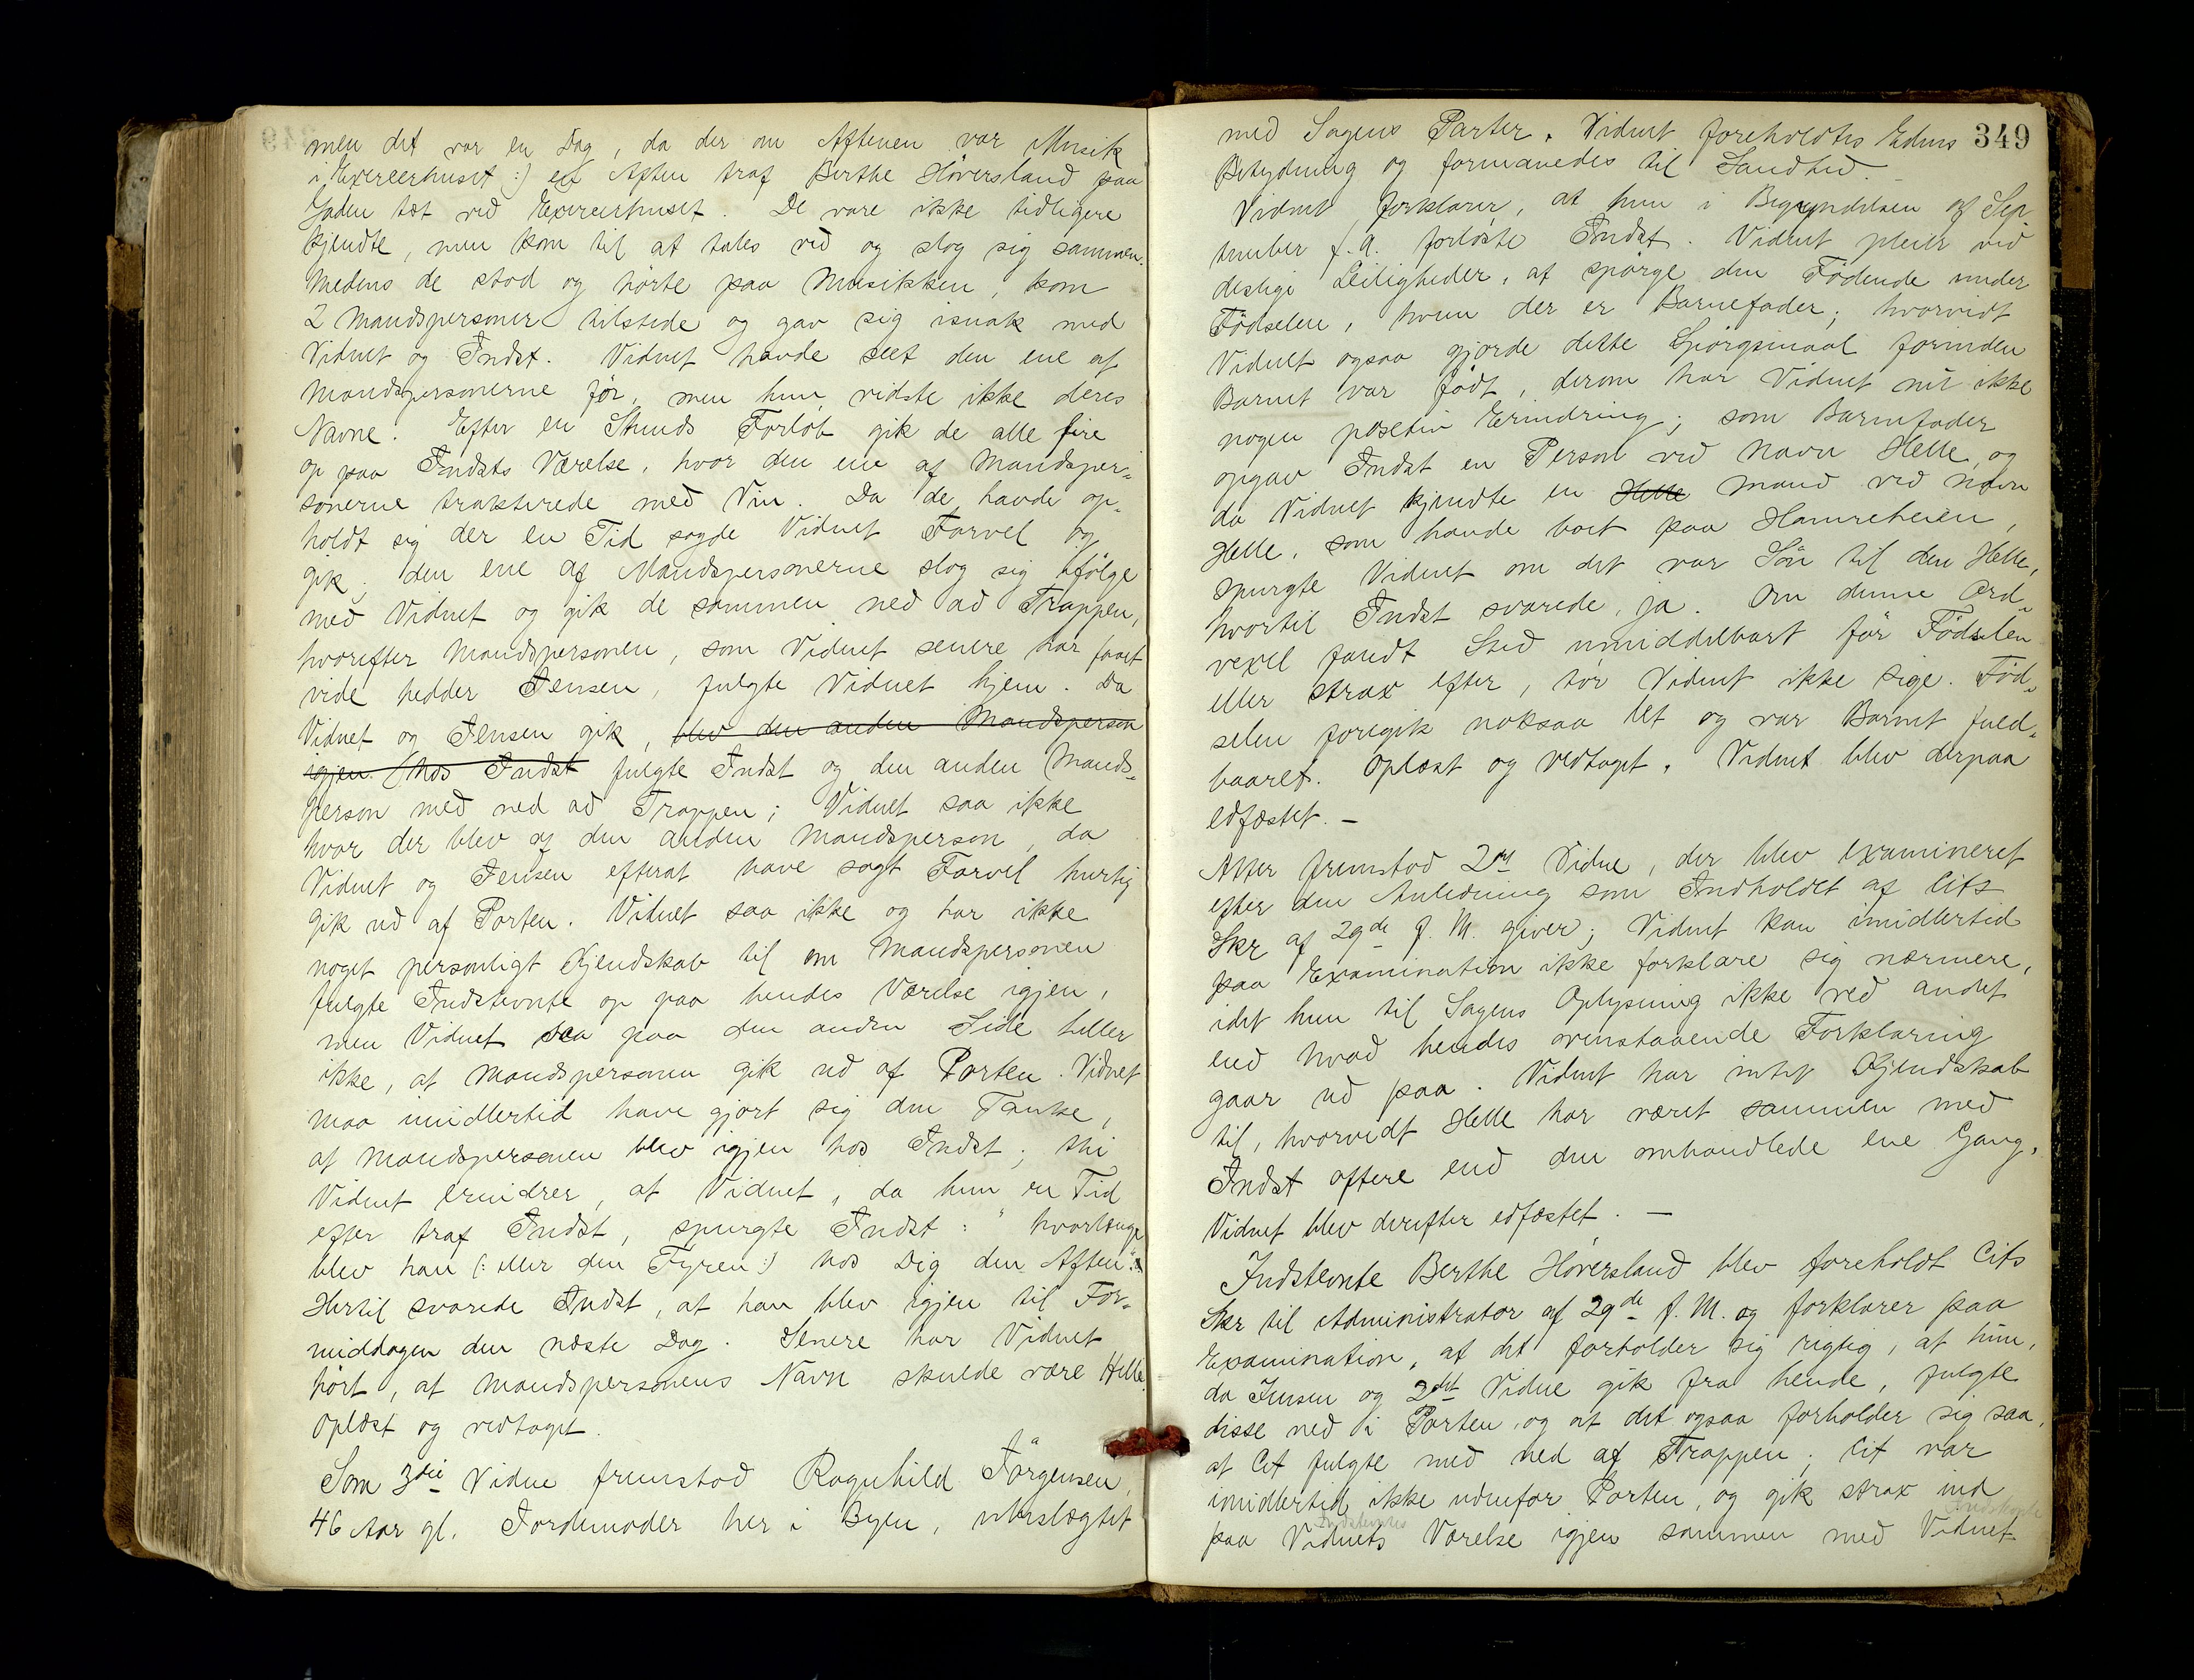 men det var en Dag, da der om Aftenen var Musik
i Exercerhuset :) en Aften traf Berthe Höversland paa
Gaden tæt ved Exercerhuset. De vare ikke tidligere
kjendte, men kom til at tales ved og slog sig sammen.
Medens de stod og hörte paa Musikken, kom
2 Mandspersoner tilstede og gav sig isnak med
Vidnet og Indst. Vidnet havde seet den ene af
Mandspersonerne för, men hun vidste ikke deres
Navne. Efter en Stunds Forløb gik de alle fire
op paa Indsts Værelse, hvor den ene af Mandsper-
sonerne trakterede med Vin. Da de havde op-
holdt sig der en Tid sagde Vidnet Farvel og
gik; den ene af Mandspersonerne slog sig ifölge
med Vidnet og gik de sammen ned ad Trappen,
hvorefter Mandspersonen, som Vidnet senere har faaet
vide hedder Jensen, fulgte Vidnet hjem. Da
Vidnet og Jensen gik, blev den anden Mandsperson
igjen hos Indst fulgte Indst og den anden Mands-
person med ned ad Trappen; Vidnet saa ikke
hvor der blev af den anden Mandsperson, da
Vidnet og Jensen efterat have sagt Farvel hurtig
gik ud af Porten. Vidnet saa ikke og har ikke
noget personligt Kjendskab til om Mandspersonen
fulgte Indstevnte op paa hendes Værelse igjen,
men Vidnet saa paa den anden Side heller
ikke, at Mandspersonen gik ud af Porten. Vidnet
maa imidlertid have gjort sig den Tanke,
at Mandspersonen blev igjen hos Indst; thi
Vidnet erindrer, at Vidnet, da hun en Tid
efter traf Indst, spurgte Indst: "hvorlænge
blev han (: eller den Fyren :) hos Dig den Aften".
Hertil svarede Indst, at han blev igjen til For-
middagen den næste Dag. Senere har Vidnet
hört, at Mandspersonens Navn skulde være Helle.
Oplæst og vedtaget.
Som 3die Vidne fremstod Ragnhild Jörgensen,
46 Aar gl. Jordemoder her i Byen, ubeslægtet
349
med Sagens Parter. Vidnet foreholdtes Edens
Betydning og formanedes til Sandhed.
Vidnet forklarer, at hun i Begyndelsen af Sep
tember f. A. forlöste Indst. Vidnet pleier ved
deslige Leiligheder, at spörge den Födende under
Födselen, hvem der er Barnefader; hvorvidt
Vidnet ogsaa gjorde dette Spörgsmaal forinden
Barnet var födt, derom har Vidnet nu ikke
nogen posetiv Erindring; som Barnefader
opgav Indst en Person ved Navn Helle, og
da Vidnet kjendte en Helle Mand ved Navn
Helle, som havde boet paa Hamreheien,
spurgte Vidnet om det var Sön til den Helle,
hvortil Indst svarede, ja. Om denne Ord-
vexel fandt Sted umiddelbart för Födselen
eller strax efter, tör Vidnet ikke sige. Föd-
selen foregik noksaa let og var Barnet fuld-
baaret. Oplæst og vedtaget. Vidnet blev derpaa
edfæstet. –
Atter fremstod 2det Vidne, der blev examineret
efter den Anledning som Indholdet af Cits
Skr af 29de f. M. giver; Vidnet kan imidlertid
paa Examination ikke forklare sig nærmere,
idet hun til Sagens Oplysning ikke ved andet
end hvad hendes ovenstaaende Forklaring
gaar ud paa. Vidnet har intet Kjendskab
til, hvorvidt Helle har været sammen med
Indst oftere end den omhandlede ene Gang.
Vidnet blev derefter edfæstet. –
Indstevnte Berthe Höversland blev foreholdt Cits
Skr til Administrator af 29de f. M. og forklarer paa
Examination, at det forholder sig rigtig, at hun,
da Jensen og 2det Vidne gik fra hende, fulgte
disse ned i Porten, og at det ogsaa forholder sig saa,
at Cit fulgte med ned af Trappen; Cit var
imidlertid ikke udenfor Porten, og gik strax ind
Indstevntes
paa Vidnets Værelse igjen sammen med Vidnet